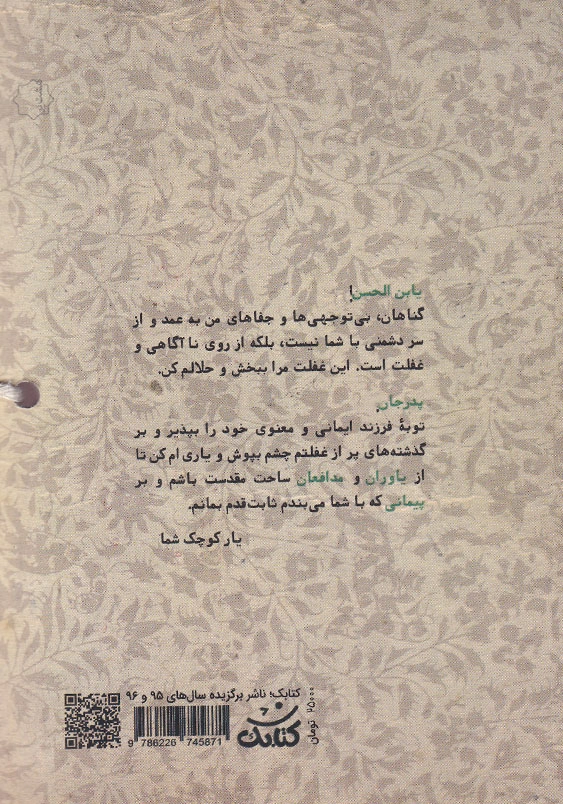 یابن الحسن!
گناهان، بی‌توجهی‌ها و جفاهای من به عمد و از
سر دشمنی با شما نیست، بلکه از روی ناآگاهی و
غفلت است. این غفلت مرا ببخش و حلالم کن.
پدرجان،
توبهٔ فرزند ایمانی و معنوی خود را بپذیر و بر
گذشته‌های پر از غفلتم چشم بپوش و یاری ام کن تا
از یاوران و مدافعان ساحت مقدست باشم و بر
پیمانی که با شما می‌بندم ثابت‌قدم بمانم.
یار کوچک شما
کتابک؛ ناشر برگزیده سال‌های ۹۵ و ۹۶
9 786226 745871
کتابک
۲۵۰۰۰ تومان